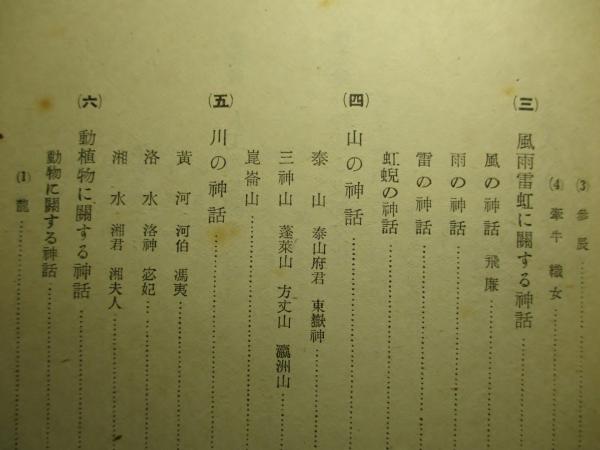 (3) 參辰
(4) 牽牛 織女
(三) 風雨雷虹に關する神話
風の神話 飛廉
雨の神話
雷の神話
虹蜺の神話
(四) 山の神話
泰山 泰山府君 東嶽神
三神山 蓬萊山 方丈山 瀛洲山
崑崙山
(五) 川の神話
黃河 河伯 馮夷
洛水 洛神 宓妃
湘水 湘君 湘夫人
(六) 動植物に關する神話
動物に關する神話
(1) 龍